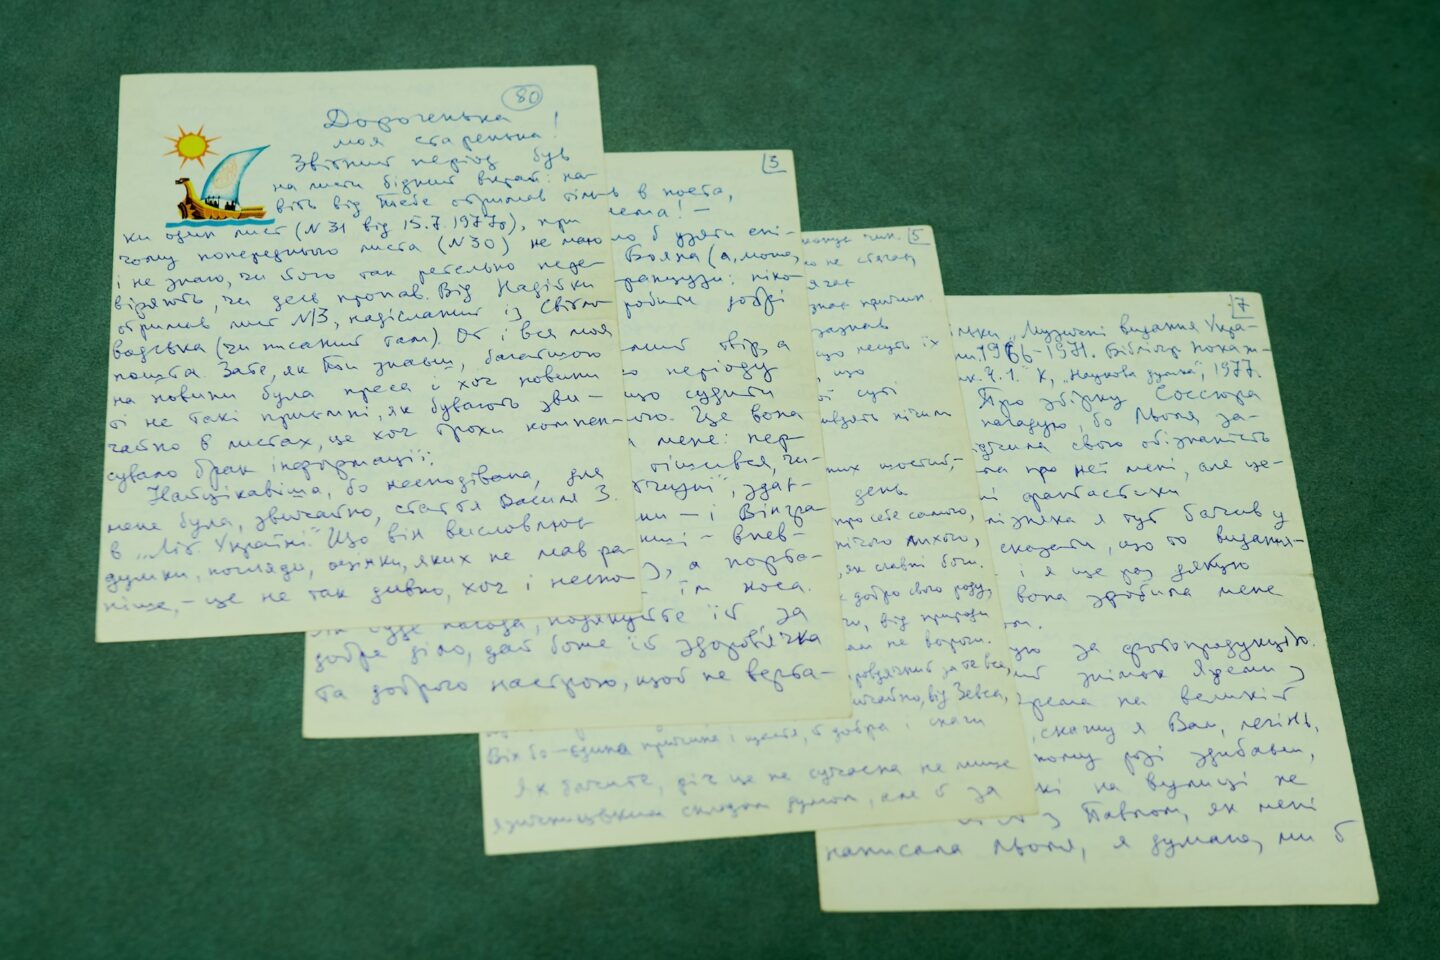 80
Дороченька
моя старенька!
Звітний період був
на листи бідний вкрай: на-
віть від Тебе отримав тіль-
ки один лист (N31 від 15.7.1977р), при
чому попереднього листа (N30) не маю
і не знаю, чи його так ретельно пере-
віряють, чи десь пропав. Від Надійки
отримав лист N/3, надісланий із Світло-
водська (чи писаний там). От і вся моя
пошта. Зате, як Ти знаєш, багатшою
на новини була преса і хоч новини
ті не такі приємні, як бувають зви-
чайно в листах, це хоч трохи компен-
сувало брак інформації:
Найцікавіша, бо несподівана, для
мене була, звичайно, стаття Василя З.
в „Літ Україні". Що він висловлює
думки, погляди, оцінки, яких не мав ра-
ніше, – це не так дивно, хоч і неспо-
3
в поета,
б узяти епі-
Бояна (а, може,
французи: ніко-
робити добрі
твір, а
періоду
що судити
Це вона
мене: пер-
тішився, чи-
здат-
ки – і Вінгра-
– впев-
а порва-
їм носа.
Як буде нагода, подякуйте їй за
добре діло, дай боже їй здоров'ячка
та доброго настрою, щоб не верба-
5
чин.
не стягав,
знав причин.
зазнав
що несуть їх
що
суті
нічим
день
про себе самого,
нічого лихого,
як славні боги.
добро свого роду,
від природи
не вороги.
за те все,
від Зевса,
Він бо – єдина причина і щастя, й добра і снаги
Як бачите, річ ця не сучасна не лише
язичницьким складом думок, але й за
7
„Музичні видання Украї-
1966–1971. Бібліогр покаж-
Ч.1." К, „Наукова думка", 1977.
Про збірку Соссюра
нагадую, бо Льоля за-
свою обізнаність
про неї мені, але це-
фантастики
я тут бачив у
сказати, що то видання-
і я ще раз дякую
вона зробила мене
за фотопродукцію.
знімок Яреми з
на великій
скажу я Вам, легінь,
розі здибавши,
на вулиці не
з Павлом, як мені
написала Льоля, я думаю, ми б